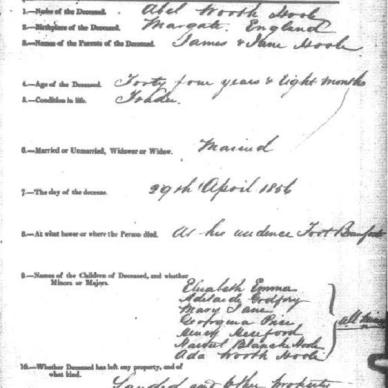 1.—Name of the Deceased. Abel Worth Hoole
2.—Birthplace of the Deceased. Margate, England
3.—Names of the Parents of the Deceased. James & Jane Hoole
4.—Age of the Deceased. Forty four years & Eight Months
5.—Condition in life. Trader.
6.—Married or Unmarried, Widower or Widow. Married
7.—The day of the decease. 29th April 1856
8.—At what house or where the Person died. At his residence Fort Beaufort
9.—Names of the Children of Deceased, and whether
Minors or Majors.
Elizabeth Emma
Adelaide Godfrey
Mary Jane
Georgina
Henry Hereford
Blanche Hoole
Ada Worth Hoole
all
10.—Whether Deceased has left any property, and of
what kind.
Landed and Other Property